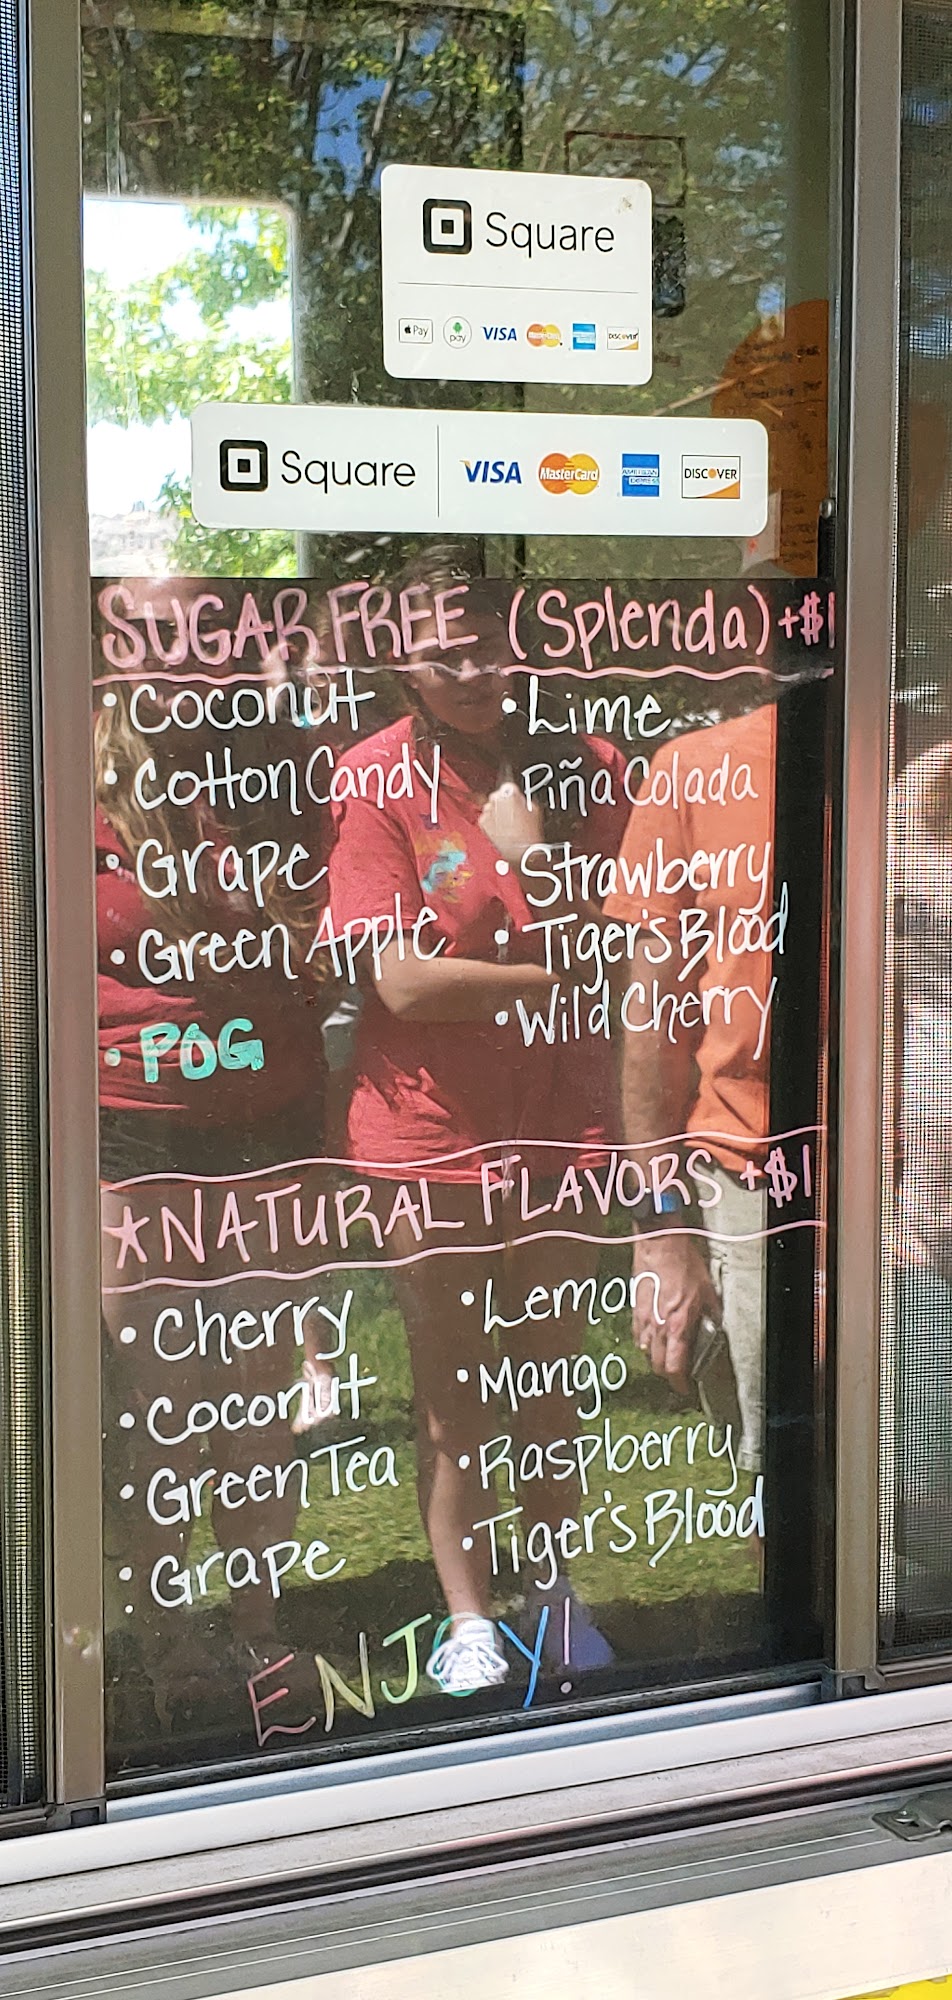 Square
Pay pay VISA MasterCard DISCOVER
Square VISA MasterCard AMERICAN EXPRESS DISCOVER
SUGAR FREE (Splenda) +$1
• Coconut
• Cotton Candy
• Grape
• Green Apple
• POG
• Lime
• Piña Colada
• Strawberry
• Tiger's Blood
• Wild Cherry
*NATURAL FLAVORS +$1
• Cherry
• Coconut
• Green Tea
• Grape
• Lemon
• Mango
• Raspberry
• Tiger's Blood
ENJOY!